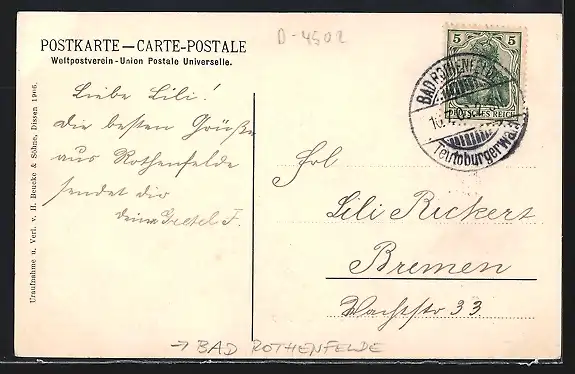 D-4502
POSTKARTE — CARTE-POSTALE
Weltpostverein - Union Postale Universelle.
Liebe Lili!
Die besten Grüße
aus Rothenfelde
sendet dir
deine Gretel F.
Uraufnahme u. Verl. v. H. Beucke & Söhne, Dissen 1906.
5 5
DEUTSCHES REICH
BAD ROTHENFELDE
Teutoburgerwald
Frl
Lili Rickert
Bremen
Wachtstr 33
→ BAD ROTHENFELDE